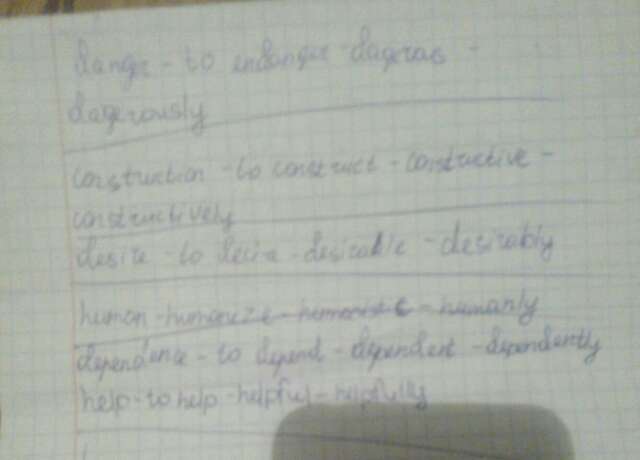 danger - to endanger - dagerous -
dagerously
construction - to construct - constructive -
constructively
desire - to desire - desirable - desirably
human - humanize - - humanly
dependence - to depend - dependent - dependently
help - to help - helpful - helpfully